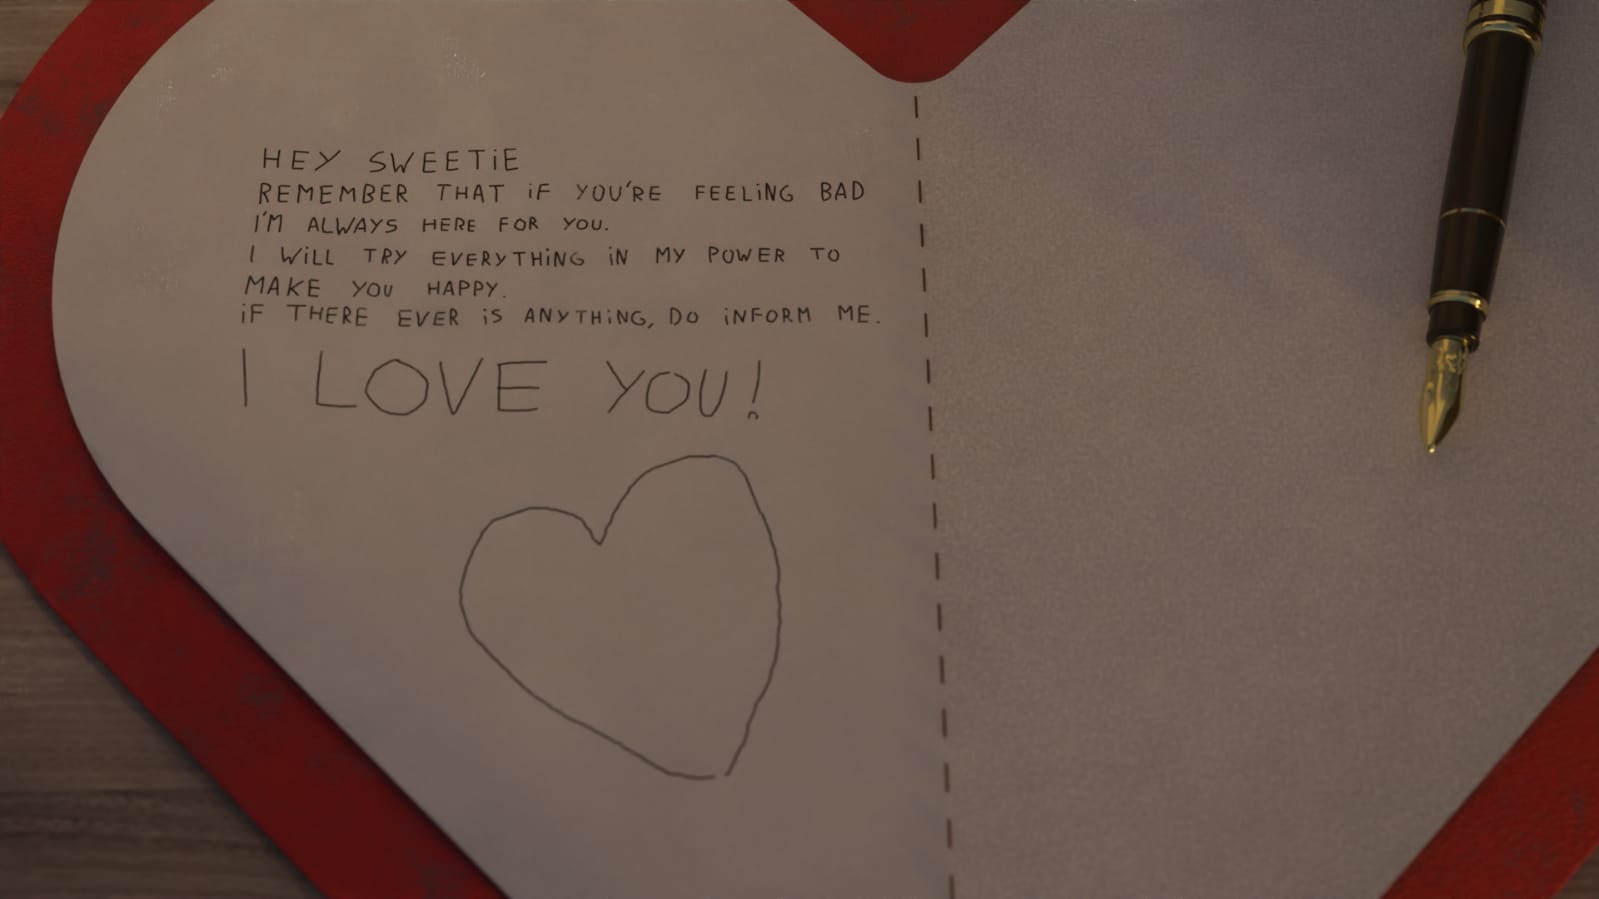 HEY SWEETIE
REMEMBER THAT IF YOU'RE FEELING BAD
I'M ALWAYS HERE FOR YOU.
I WILL TRY EVERYTHING IN MY POWER TO
MAKE YOU HAPPY.
IF THERE EVER IS ANYTHING, DO INFORM ME.
I LOVE YOU!